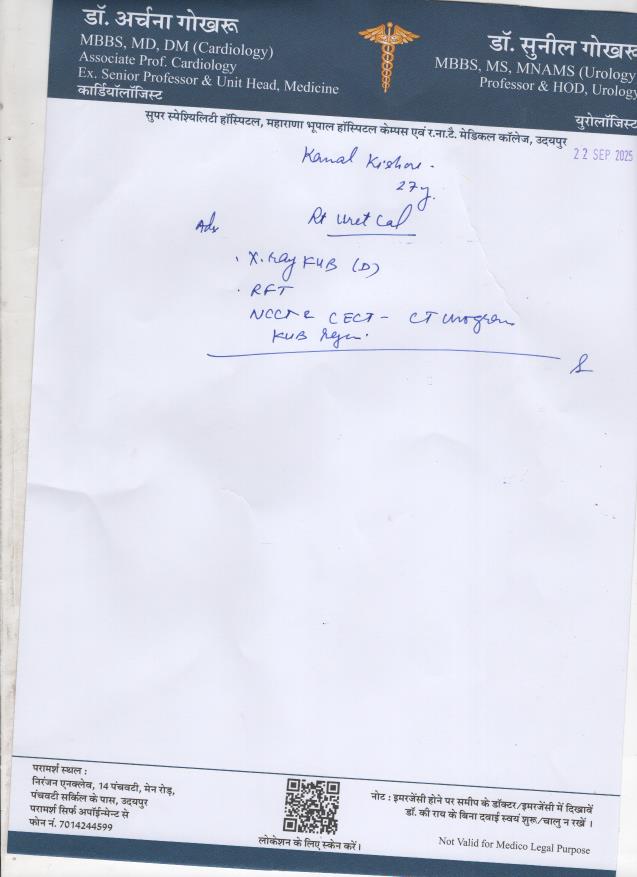 डॉ. अर्चना गोखरू
MBBS, MD, DM (Cardiology)
Associate Prof. Cardiology
Ex. Senior Professor & Unit Head, Medicine
कार्डियॉलॉजिस्ट
डॉ. सुनील गोखरू
MBBS, MS, MNAMS (Urology
Professor & HOD, Urology
युरोलॉजिस्ट
सुपर स्पेश्यिलिटी हॉस्पिटल, महाराणा भूपाल हॉस्पिटल केम्पस एवं र.ना.टै. मेडिकल कॉलेज, उदयपुर
22 SEP 2025
Kamal Kishore
27y.
Rt Uret Cal
Adv
. X-ray KUB (D)
. RFT
NCCT & CECT - CT Urogram
KUB Region.
परामर्श स्थल :
निरंजन एनक्लेव, 14 पंचवटी, मेन रोड़,
पंचवटी सर्किल के पास, उदयपुर
परामर्श सिर्फ अपॉईन्मेन्ट से
फोन नं. 7014244599
लोकेशन के लिए स्केन करें।
नोट : इमरजेंसी होने पर समीप के डॉक्टर/इमरजेंसी में दिखावें
डॉ. की राय के बिना दवाई स्वयं शुरू/चालु न रखें ।
Not Valid for Medico Legal Purpose